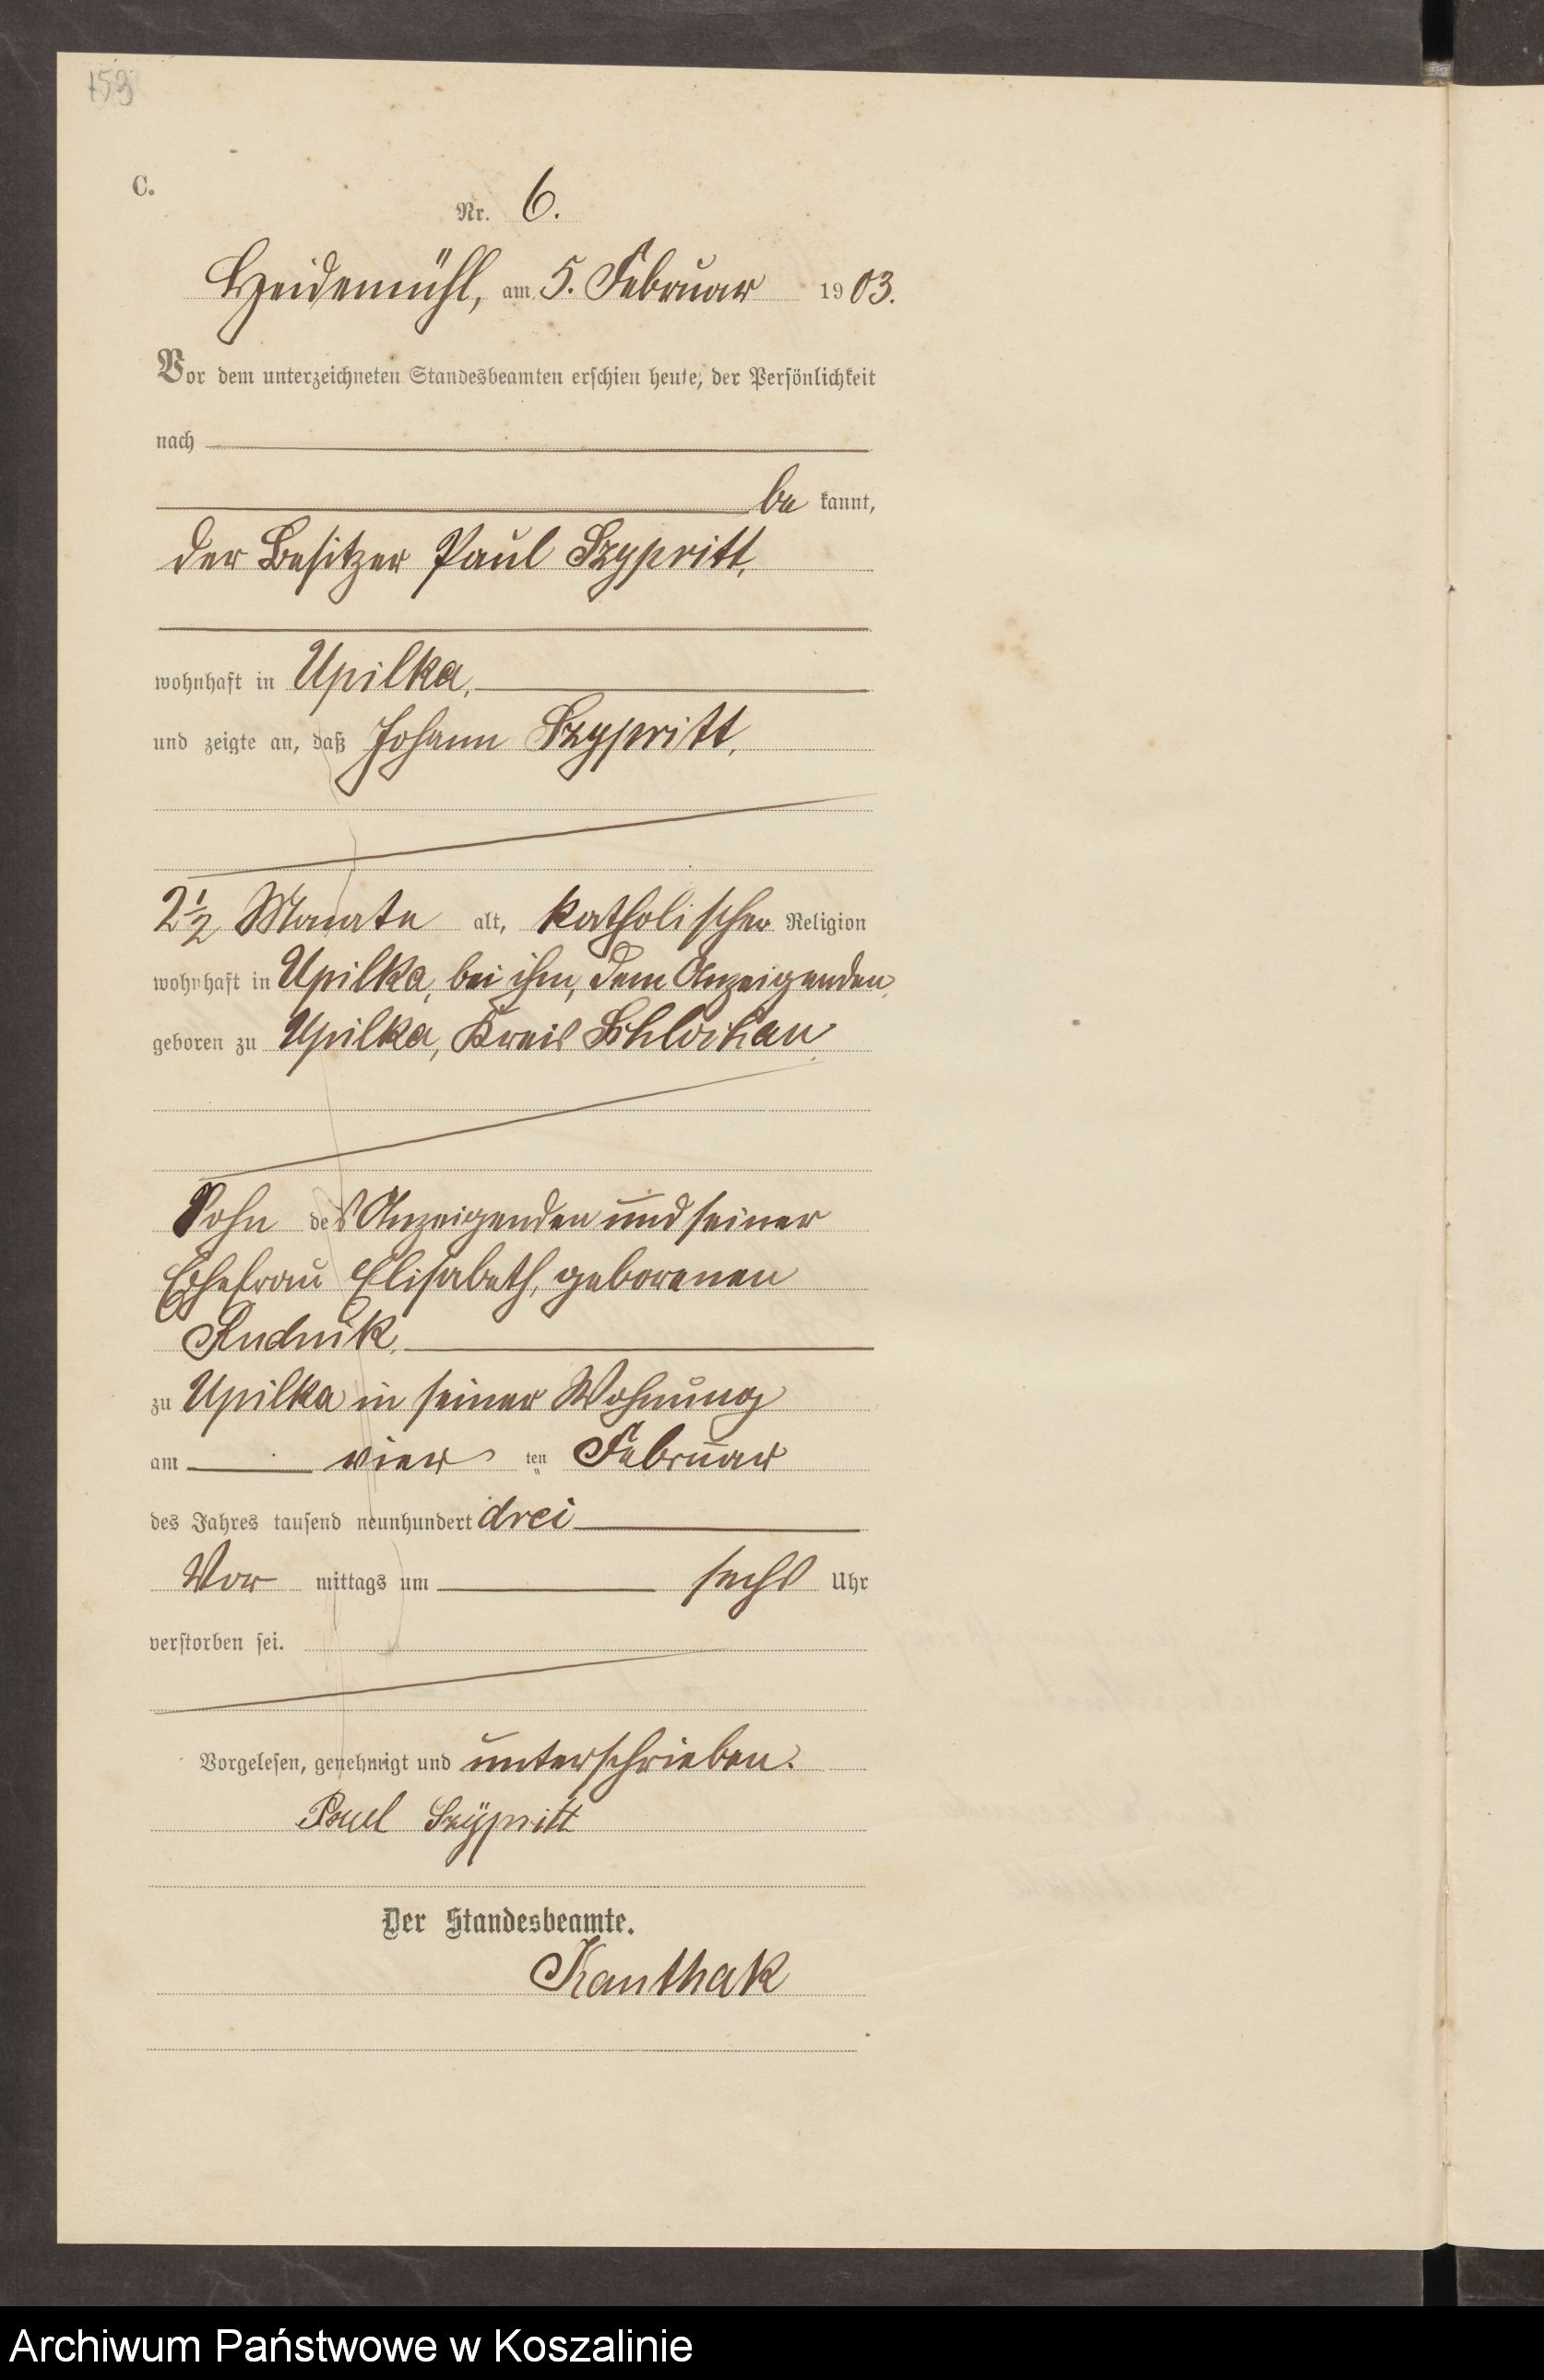 153
C.
Nr. 6.
Heidemühl, am 5. Februar 1903.
Vor dem unterzeichneten Standesbeamten erschien heute, der Persönlichkeit
nach
be kannt,
der Besitzer Paul Szypritt,
wohnhaft in Upilka,
und zeigte an, daß Johann Szypritt,
2½ Monate alt, katholischer Religion
wohnhaft in Upilka, bei ihm, dem Anzeigenden,
geboren zu Upilka, Kreis Schlochau
Sohn des Anzeigenden und seiner
Ehefrau Elisabeth, geborenen
Rudnik,
zu Upilka in seiner Wohnung
am vier ten Februar
des Jahres tausend neunhundert drei
Vor mittags um sechs Uhr
verstorben sei.
Vorgelesen, genehmigt und unterschrieben.
Paul Szÿpritt
Der Standesbeamte.
Kanthak
Archiwum Państwowe w Koszalinie